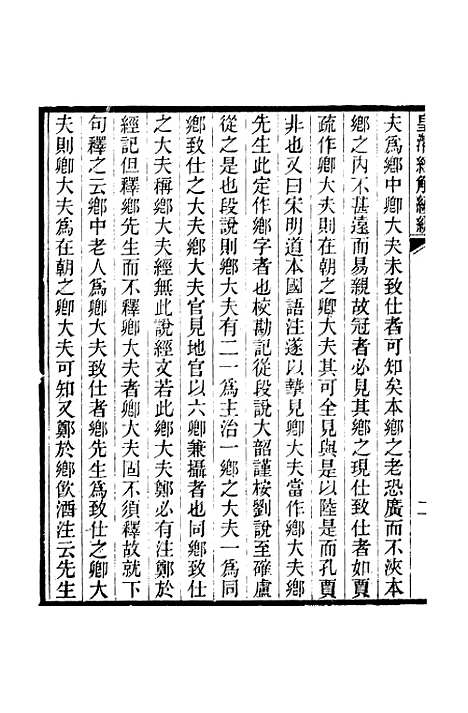 皇清經解續編
二
夫爲鄉中卿大夫未致仕者可知矣本鄉之老恐廣而不浹本
鄉之內不甚遠而易親故冠者必見其鄉之現仕致仕者如賈
疏作卿大夫則在朝之卿大夫其可全見與是以陸是而孔賈
非也又曰宋明道本國語注遂以摯見卿大夫當作鄉大夫鄉
先生此定作鄉字者也校勘記從段說大韶謹桉劉說至確盧
從之是也段說則鄉大夫有二一爲主治一鄉之大夫一爲同
鄉致仕之大夫鄉大夫官見地官以六卿兼攝者也同鄉致仕
之大夫稱鄉大夫經無此說經文若此鄉大夫鄭必有注鄭於
經記但釋鄉先生而不釋卿大夫者卿大夫固不須釋故就下
句釋之云鄉中老人爲卿大夫致仕者鄉先生爲致仕之卿大
夫則卿大夫爲在朝之卿大夫可知又鄭於鄉飲酒注云先生